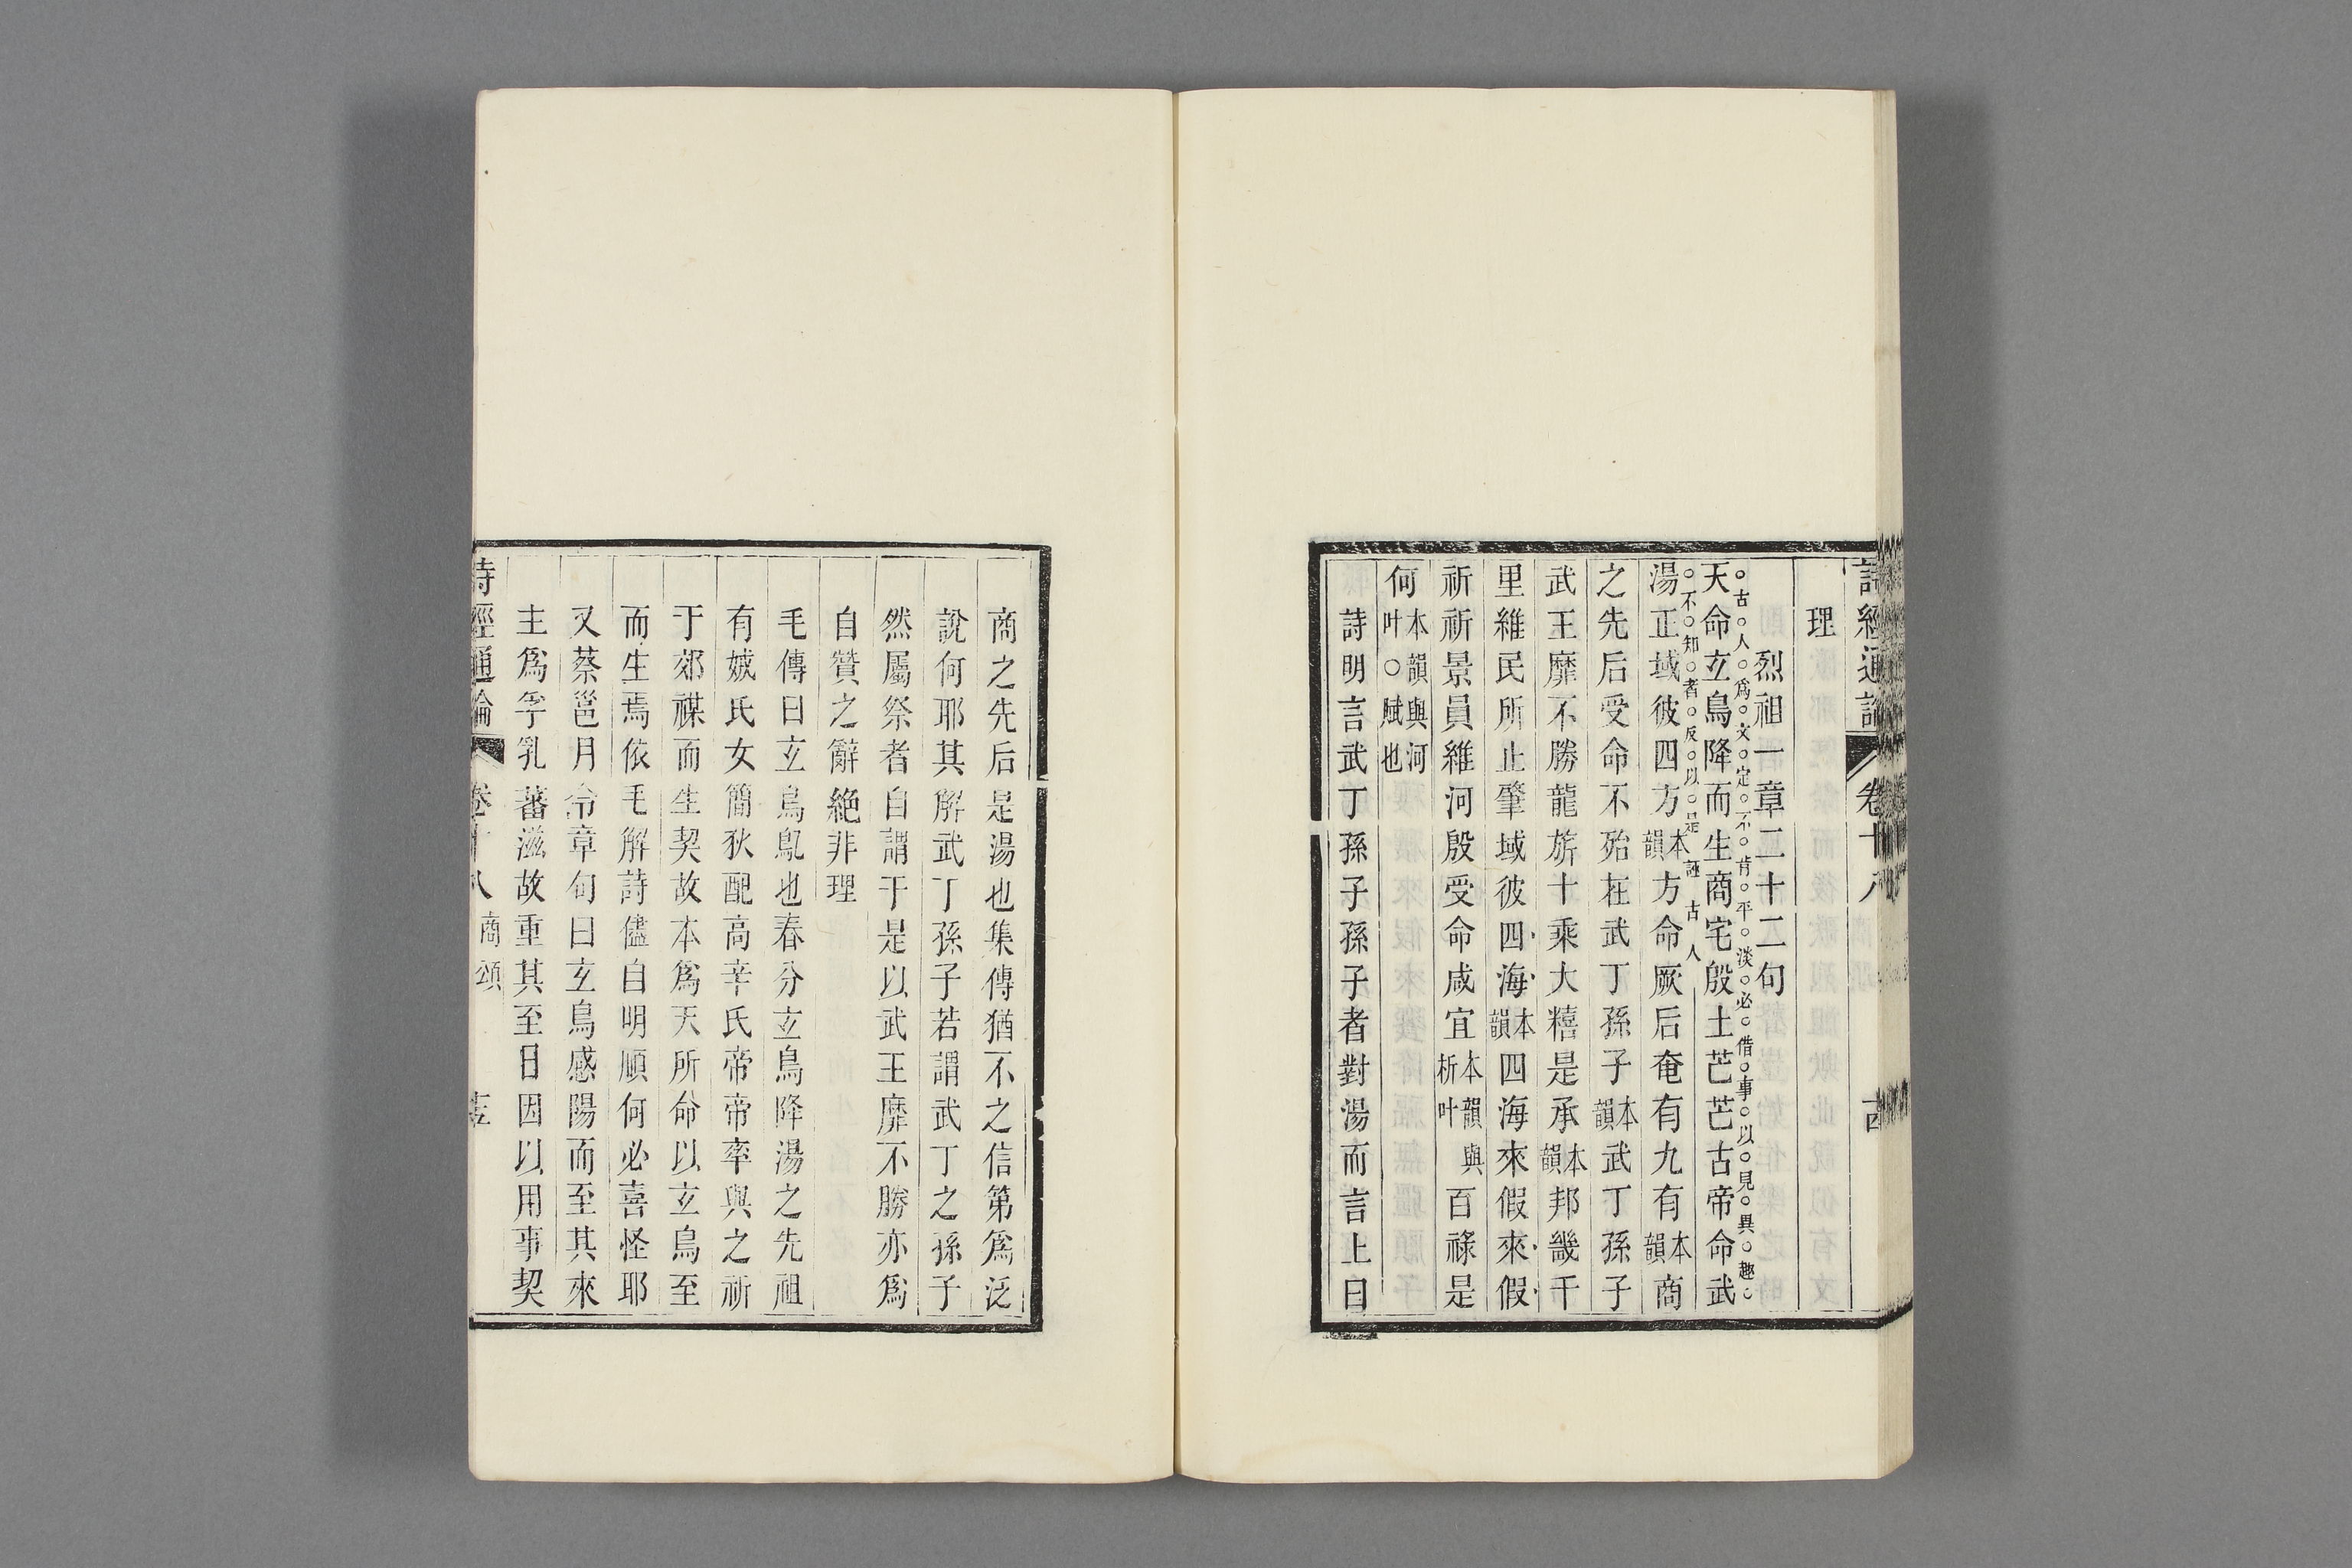 詩經通論 卷十八
理
烈祖一章二十二句
古○人○爲○文○定○不○肯○平○淡○必○借○事○以○見○異○趣○
天命玄鳥降而生商宅殷土芒芒古帝命武
不○知○者○反○以○是誣古人
湯正域彼四方本韻方命厥后奄有九有本韻商
之先后受命不殆在武丁孫子本韻武丁孫子
武王靡不勝龍旂十乘大糦是承本韻邦畿千
里維民所止肇域彼四海本韻四海來假來假
祈祈景員維河殷受命咸宜本韻與析叶百祿是
何本韻與河叶○賦也
詩明言武丁孫子孫子者對湯而言上曰
商之先后是湯也集傳猶不之信第爲泛
說何耶其解武丁孫子若謂武丁之孫子
然屬祭者自謂于是以武王靡不勝亦爲
自贊之辭絕非理
毛傳曰玄鳥鳦也春分玄鳥降湯之先祖
有娀氏女簡狄配高辛氏帝帝率與之祈
于郊禖而生契故本爲天所命以玄鳥至
而生焉依毛解詩儘自明順何必喜怪耶
又蔡邕月令章句曰玄鳥感陽而至其來
主爲孚乳蕃滋故重其至日因以用事契
詩經通論 卷十八 商頌 十五